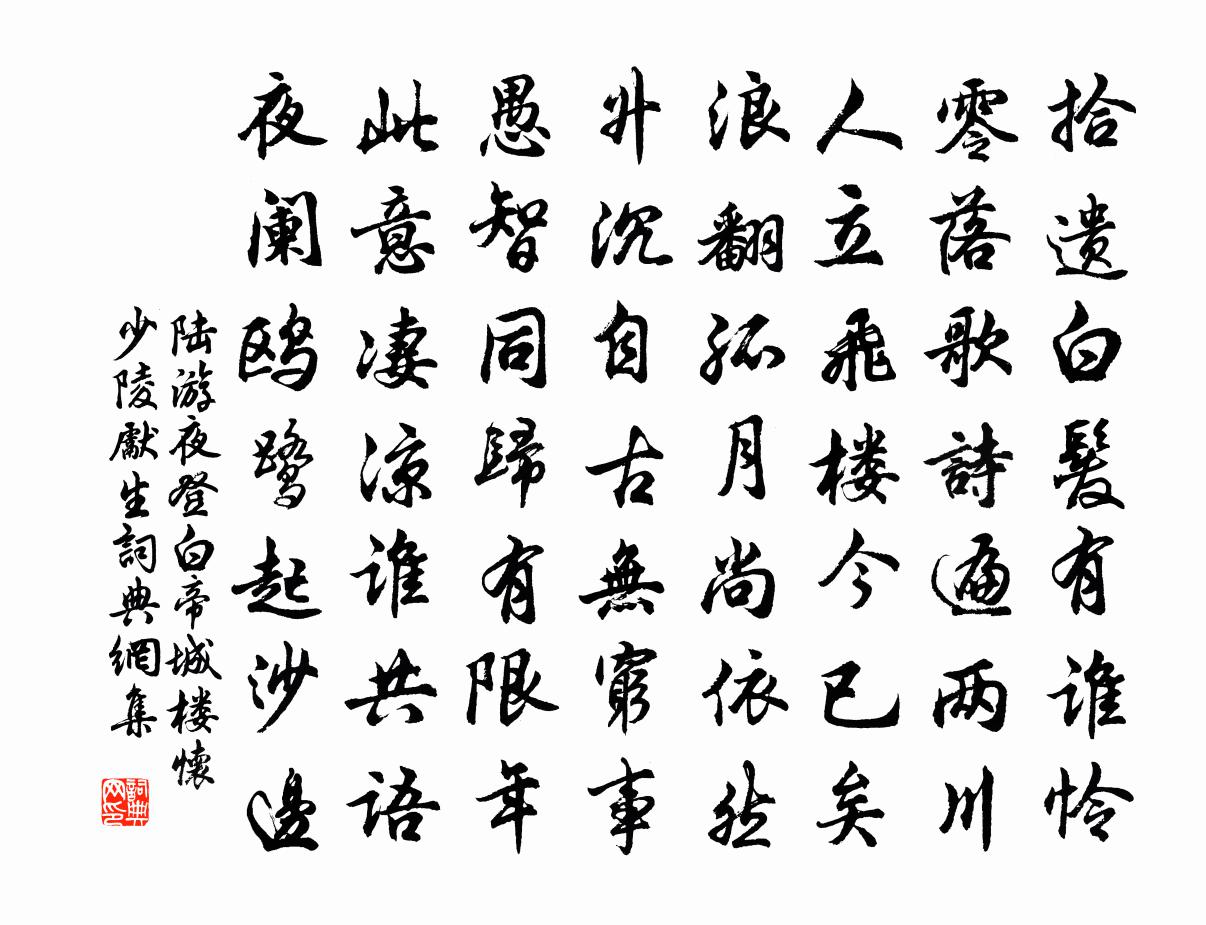 拾遗白髮有谁怜
零落歌詩遍两川
人立飛楼今已矣
浪翻孤月尚依然
升沉自古無窮事
愚智同歸有限年
此意凄凉谁共語
夜阑鸥鹭起沙邊
陆游夜登白帝城楼懷
少陵獻生詞典網集
詞典
网印